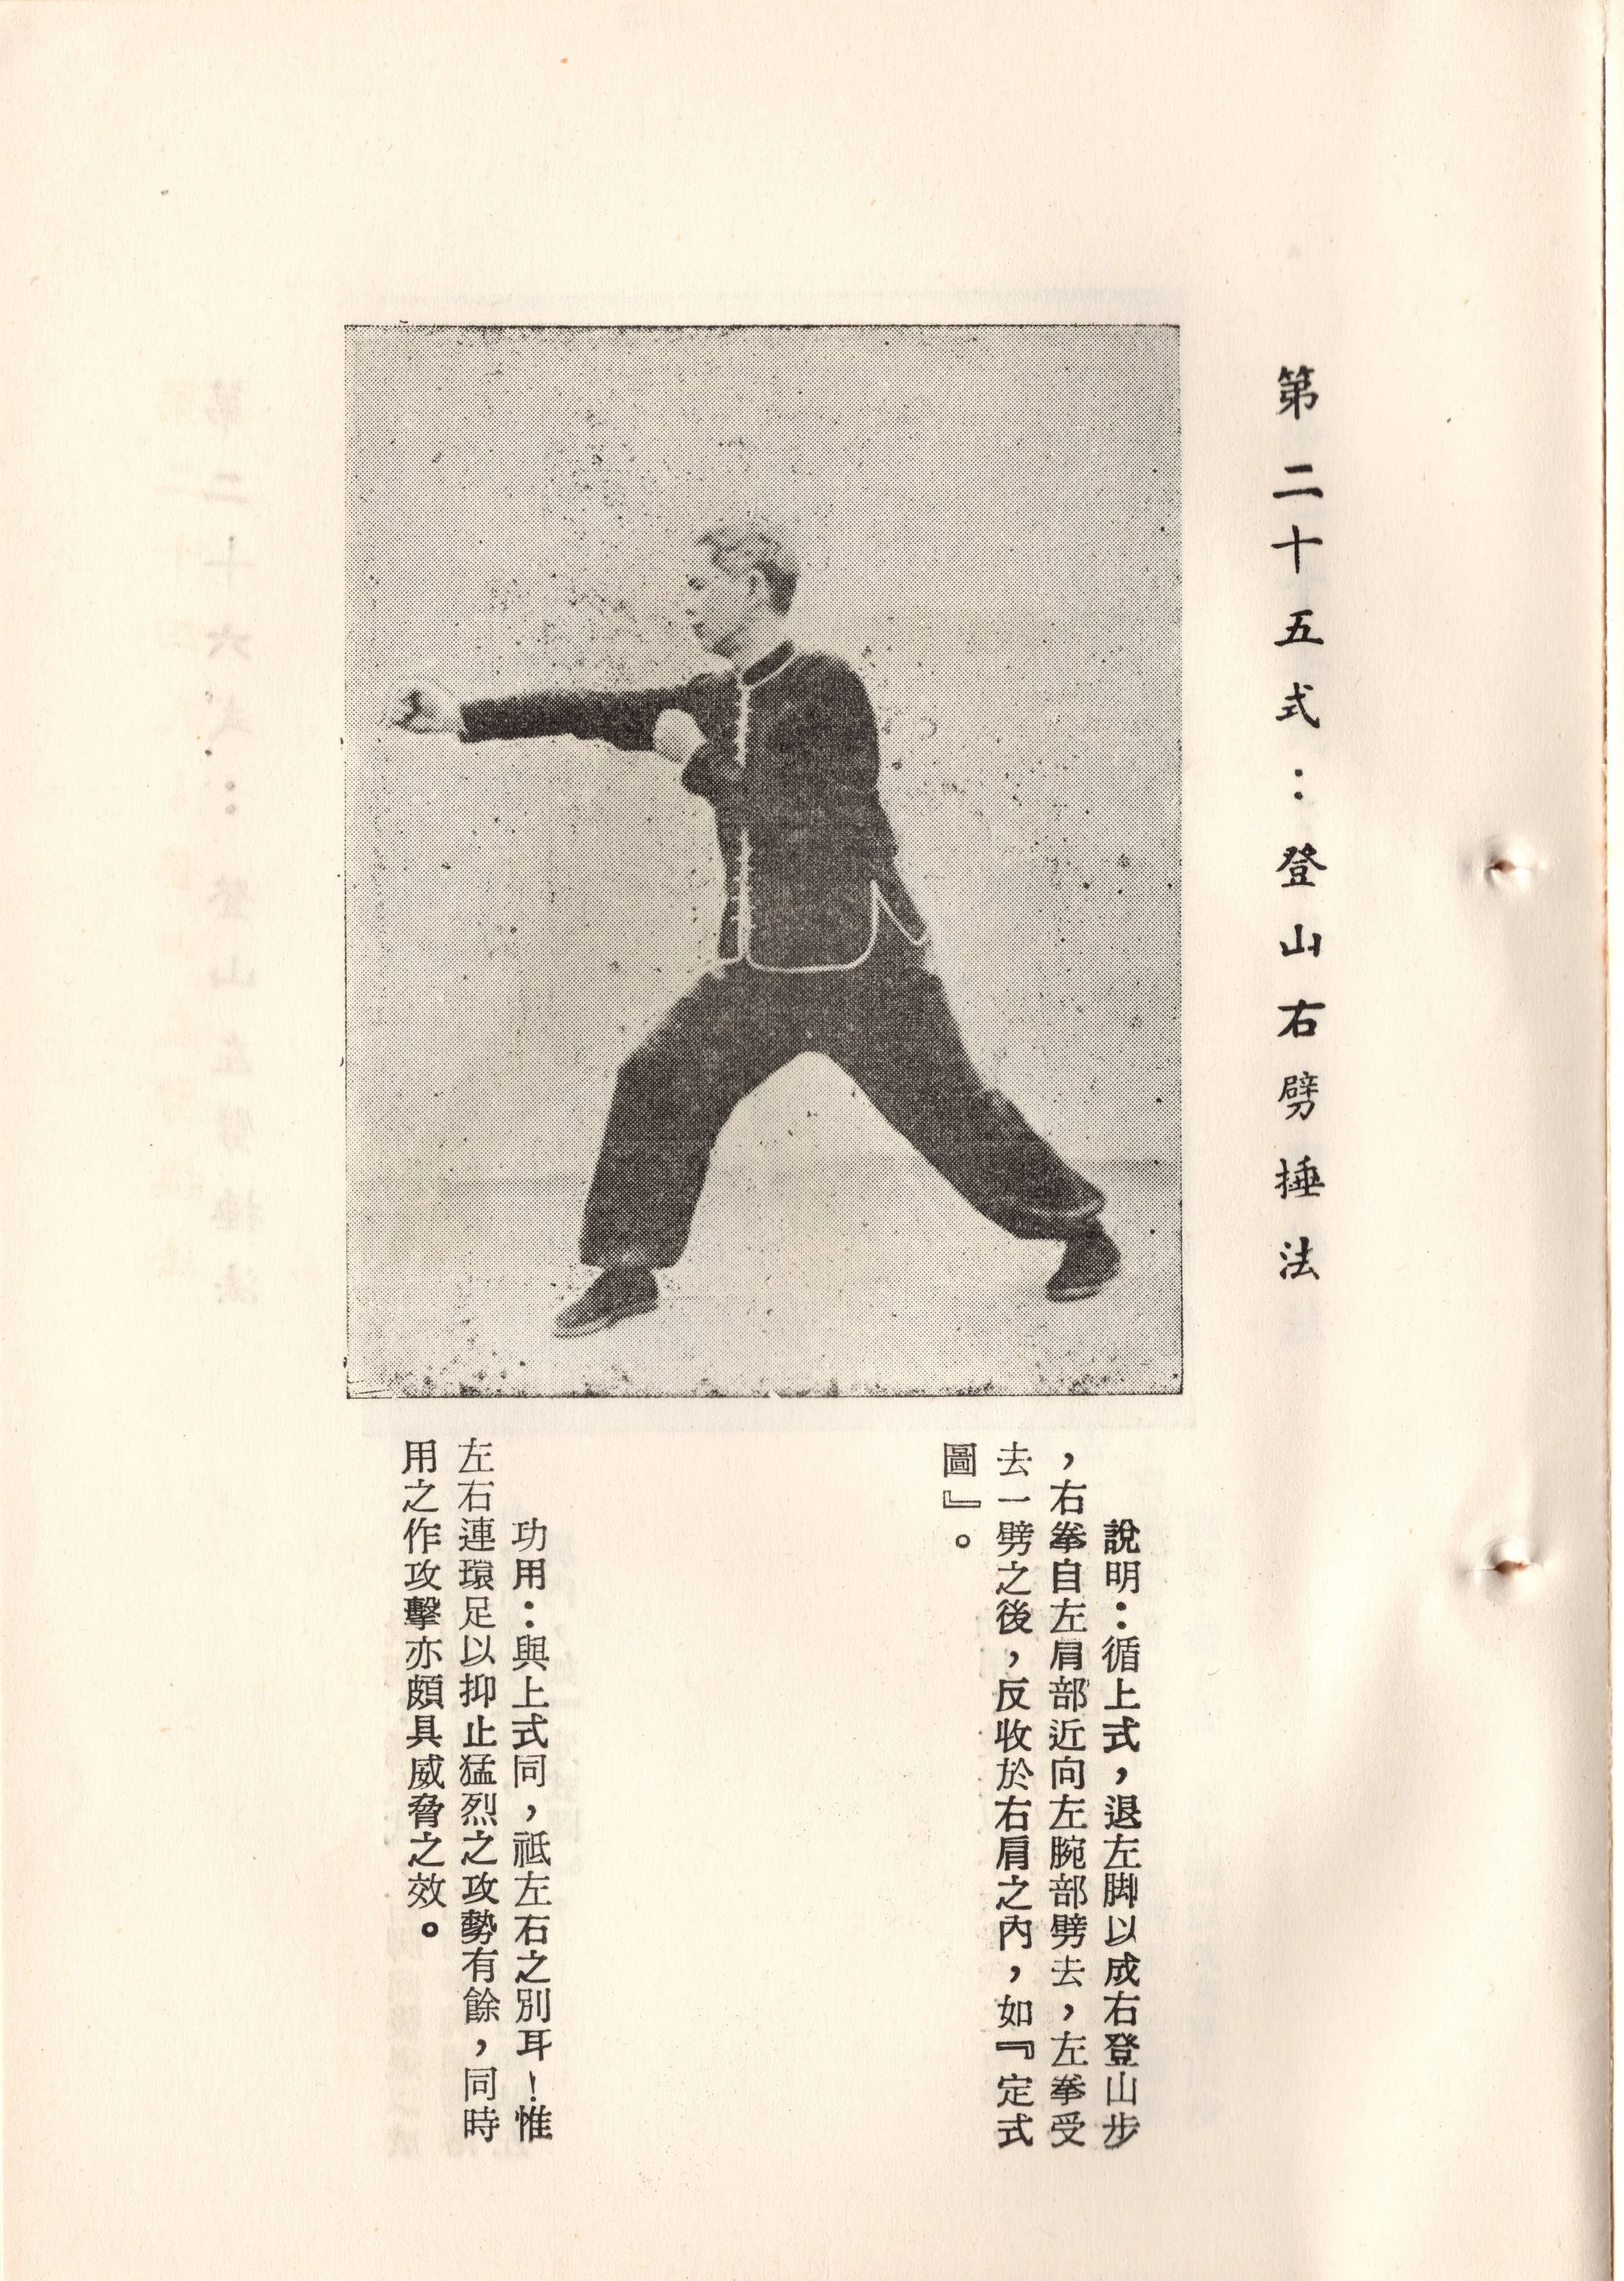 第二十五式：登山右劈捶法
說明：循上式，退左脚以成右登山步
，右拳自左肩部近向左腕部劈去，左拳受
去一劈之後，反收於右肩之內，如『定式
圖』。
功用：與上式同，祗左右之別耳！惟
左右連環足以抑止猛烈之攻勢有餘，同時
用之作攻擊亦頗具威脅之效。